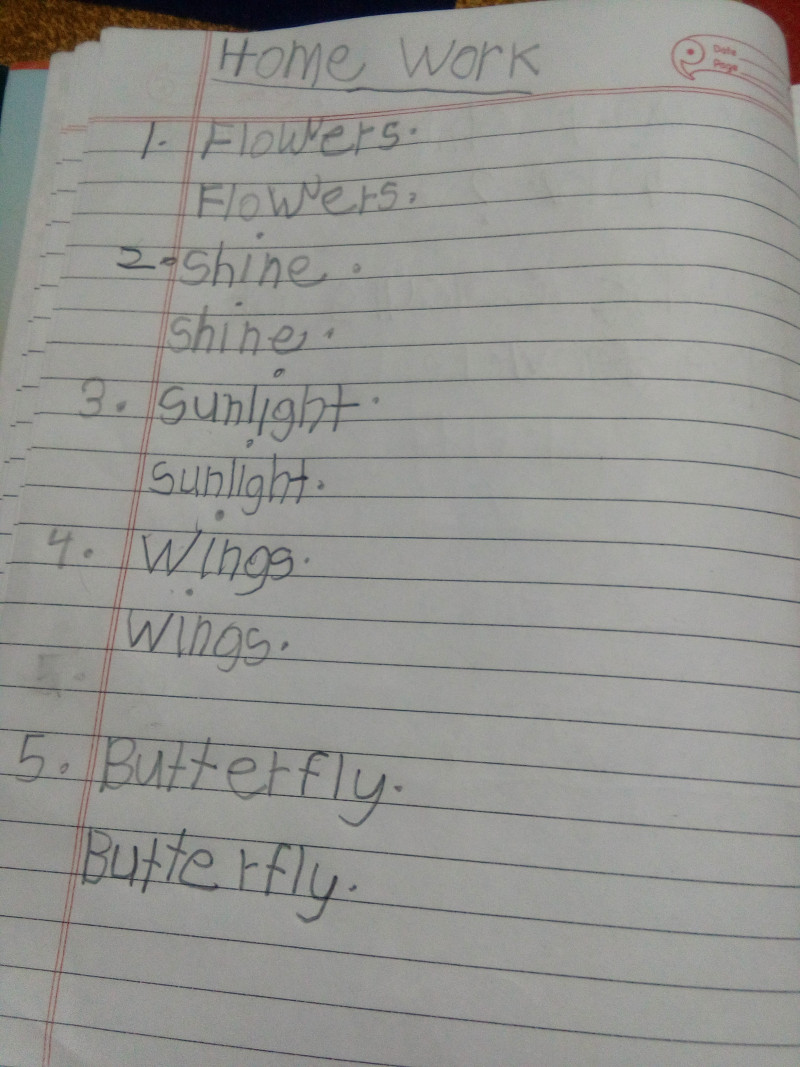 Home Work
Date
Page
1. Flowers.
Flowers.
2. Shine.
Shine.
3. Sunlight.
Sunlight.
4. Wings.
Wings.
5.
5. Butterfly.
Butterfly.